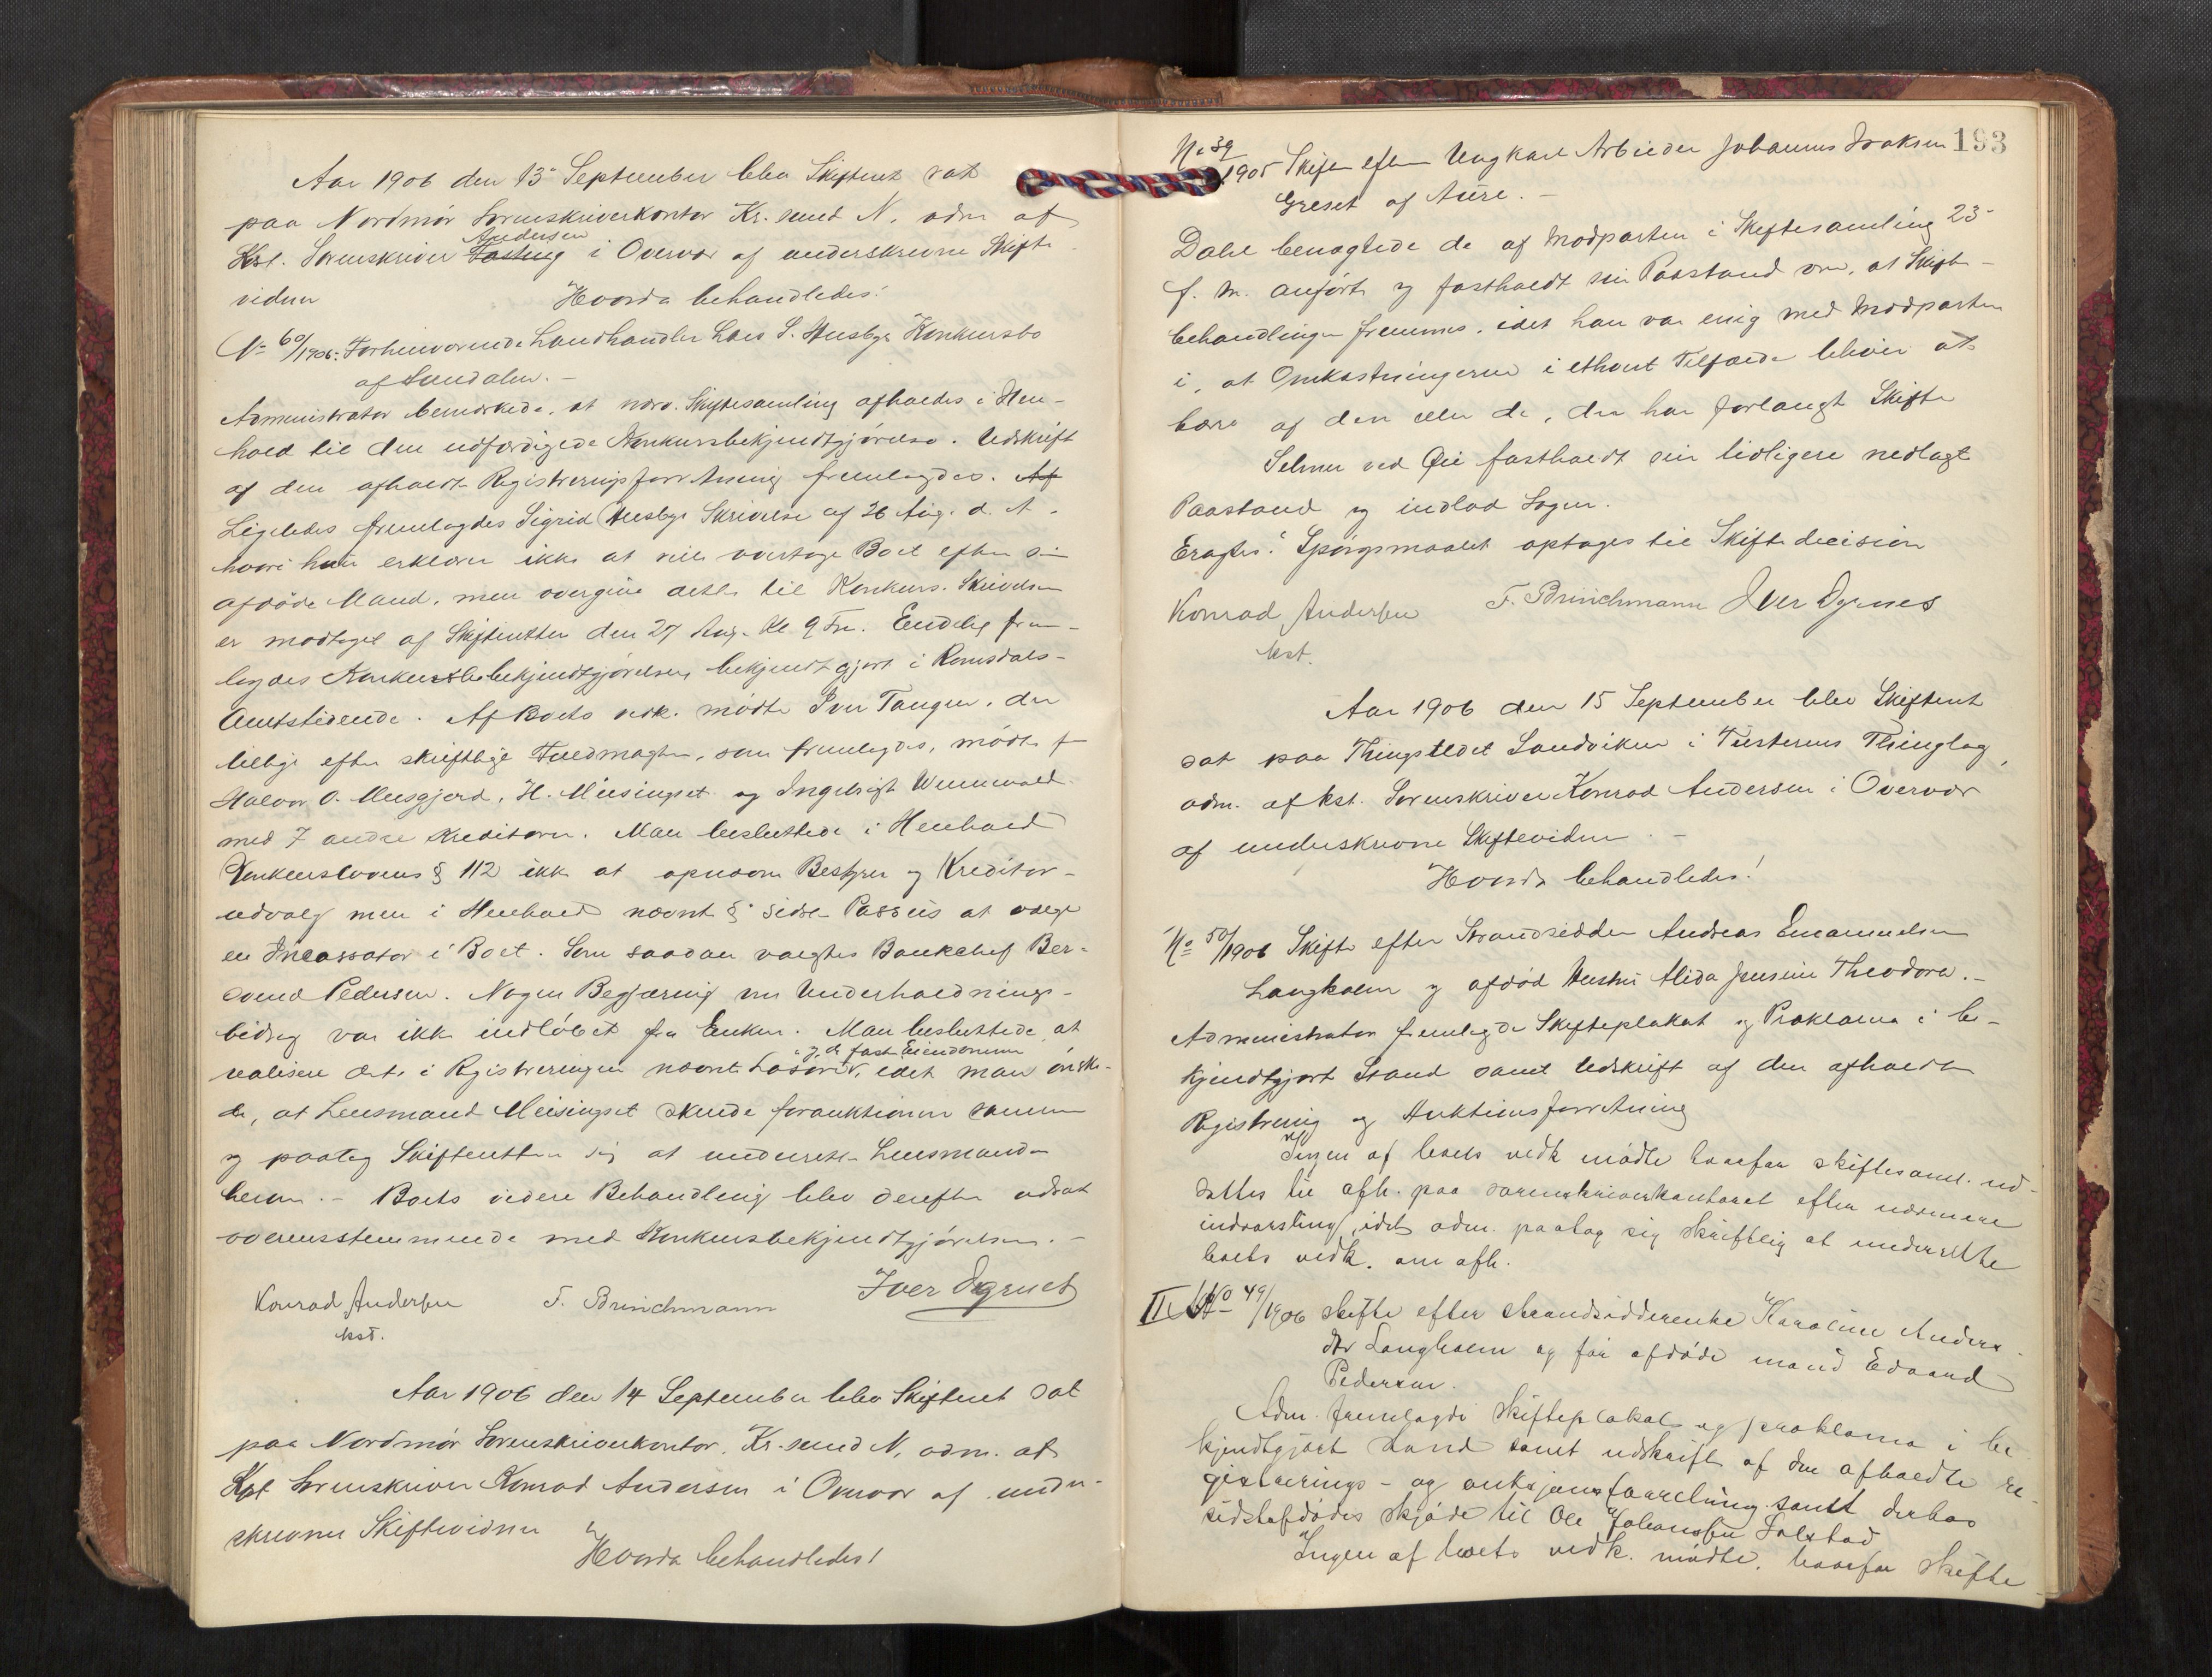 Aar 1906 den 13de September blev Skifteret sat
paa Nordmør Sorenskriverkontor Kr.sund N. adm af
Kst. Sorenskriver Fasting Andersen i Overvær af underskrevne Skifte-
vidner
Hvorda behandledes:
No 60/1906. Forhenværende Landhandler Lars S. Husbys Konkursbo
af Sundalen. -
Administrator bemærkede, at nærv. Skiftesamling afholdes i Hen-
hold til den udfærdigede Konkursbekjendtgjørelse. Udskrift
af den afholdte Registreringsforretning fremlagdes. Af
Ligeledes fremlagdes Sigrid Husbys Skrivelse af 26 Aug. d. A.
hvori hun erklærer ikke at ville overtage Boet efter sin
afdøde Mand, men overgive dette til Konkurs. Skrivelsen
er modtaget af Skifteretten den 27 Aug. Kl. 9 Fm. Endelig frem-
lagdes Konkursbekjendtgjørelsen, bekjendtgjort i Romsdals-
Amtstidende. Af Boets vedk. mødte Iver Tangen, der
tillige efter skriftlige Fuldmagter, som fremlagdes, mødte f
Halvor O. Musgjerd, H. Meisingset og Ingebrigt
med 7 andre Kreditorer. Man besluttede i Henhold
Konkurslovens § 112 ikke at opnævne Bestyrer og Kreditor-
udvalg men i Henhold nævnte §' sidste Passus at vælge
en Incassator i Boet. Som saadan valgtes Bankchef Ber-
Svend Pedersen. Nogen Begjæring om Underholdnings-
bidrag var ikke indløbet fra Enken. Man besluttede at
realisere det i Registreringen nævnte Løsøre, og de faste Eiendomme idet man ønske-
de, at Lensmand Meisingset skulde forauktionere samme
og paatog Skifteretten sig at underrette Lensmanden
herom. - Boets videre Behandling blev derefter udsat
overensstemmende med Konkursbekjendtgjørelsen. -
Konrad Andersen F. Brinchmann Iver Øgrnes
kst.
Aar 1906 den 14 September blev Skifteret sat
paa Nordmør Sorenskriverkontor, Kr.sund N, adm. af
Kst Sorenskriver Konrad Andersen i Overvær af under-
skrevne Skiftevidner
Hvorda behandledes!
193
No 39/1905 Skifte efter Ungkarl Arbeider Johannes Isaksen
Greset af Aure. -
Dahl benægtede de af Modparten i Skiftesamling 23de
f. M. anførte og fastholdt sin Paastand om, at Skifte-
behandlingen fremmes, idet han var enig med Modparten
i, at Omkostningerne i ethvert Tilfælde bliver at
bære af den eller de, der har forlangt Skifte
Selmer ved Øie fastholdt sin tidligere nedlagte
Paastand og indlod Sagen.
Eragtes: Spørgsmaalet optages til Skiftedecision
Konrad Andersen F. Brinchmann Iver Øgrnes
kst.
Aar 1906 den 15 September blev Skifteret
sat paa Thingstedet Sandviken i Tusterens Thinglag,
adm. af kst. Sorenskriver Konrad Andersen i Overvær
af underskrevne Skiftevidner. -
Hvorda behandledes!
No 50/1906 Skifte efter Strandsidder Andreas Emanuelsen
Langholm og afdød Hustru Alida Jensine Theodora. -
Administrator fremlagde Skifteplakat og Proklama i be-
kjendtgjort Stand samt Udskrift af den afholdte
Registrering og Auktionsforretning
Ingen af boets vedk mødte hvorfor skiftesaml. ud-
sattes til afh. paa sorenskriverkontoret efter nærmere
indvarsling, idet adm. paatog sig skriftlig at underrette
boets vedk. om afh.
II. No 49/1906 Skifte efter strandsidderenke Karoline Anders-
dtr Langholm og før afdøde mand Edvard
Pedersen.
Adm. fremlagde skifteplakat og proklama i be-
kjendtgjort stand samt udskrift af den afholdte re-
gistrerings- og auksjonsforretning samt derhos
sidstafdødes skjøde til Ole Johansen Folstad
Ingen af boets vedk. mødte, hvorfor skifte-